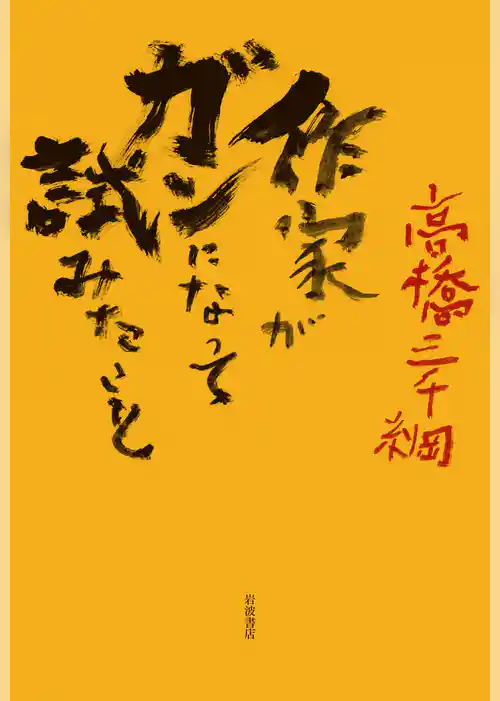 作家が
ガンになって
試みたこと
高橋三千綱
岩波書店